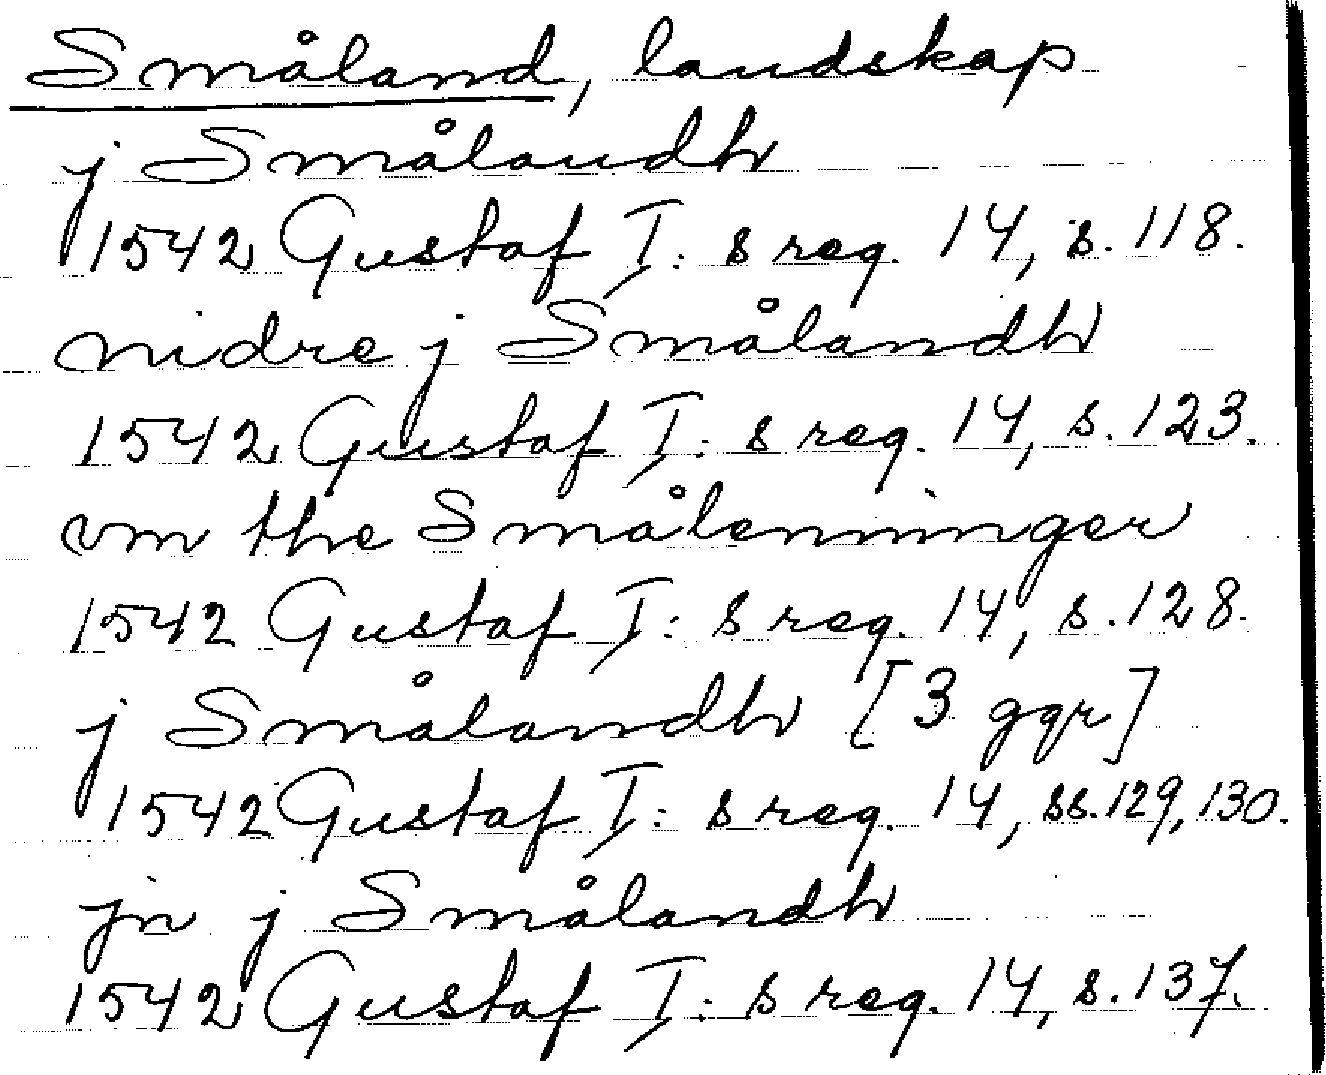 Småland, landskap
j Smålandh
1542 Gustaf I: s reg. 14, s. 118.
nidre j Smålandh
1542 Gustaf I: s reg. 14, s. 123.
vm the Smålenninger
1542 Gustaf I: s reg. 14, s. 128.
j Smålandh [3 ggr]
1542 Gustaf I: s reg. 14, ss. 129, 130.
jn j Smålandh
1542 Gustaf I: s reg. 14, s. 137.